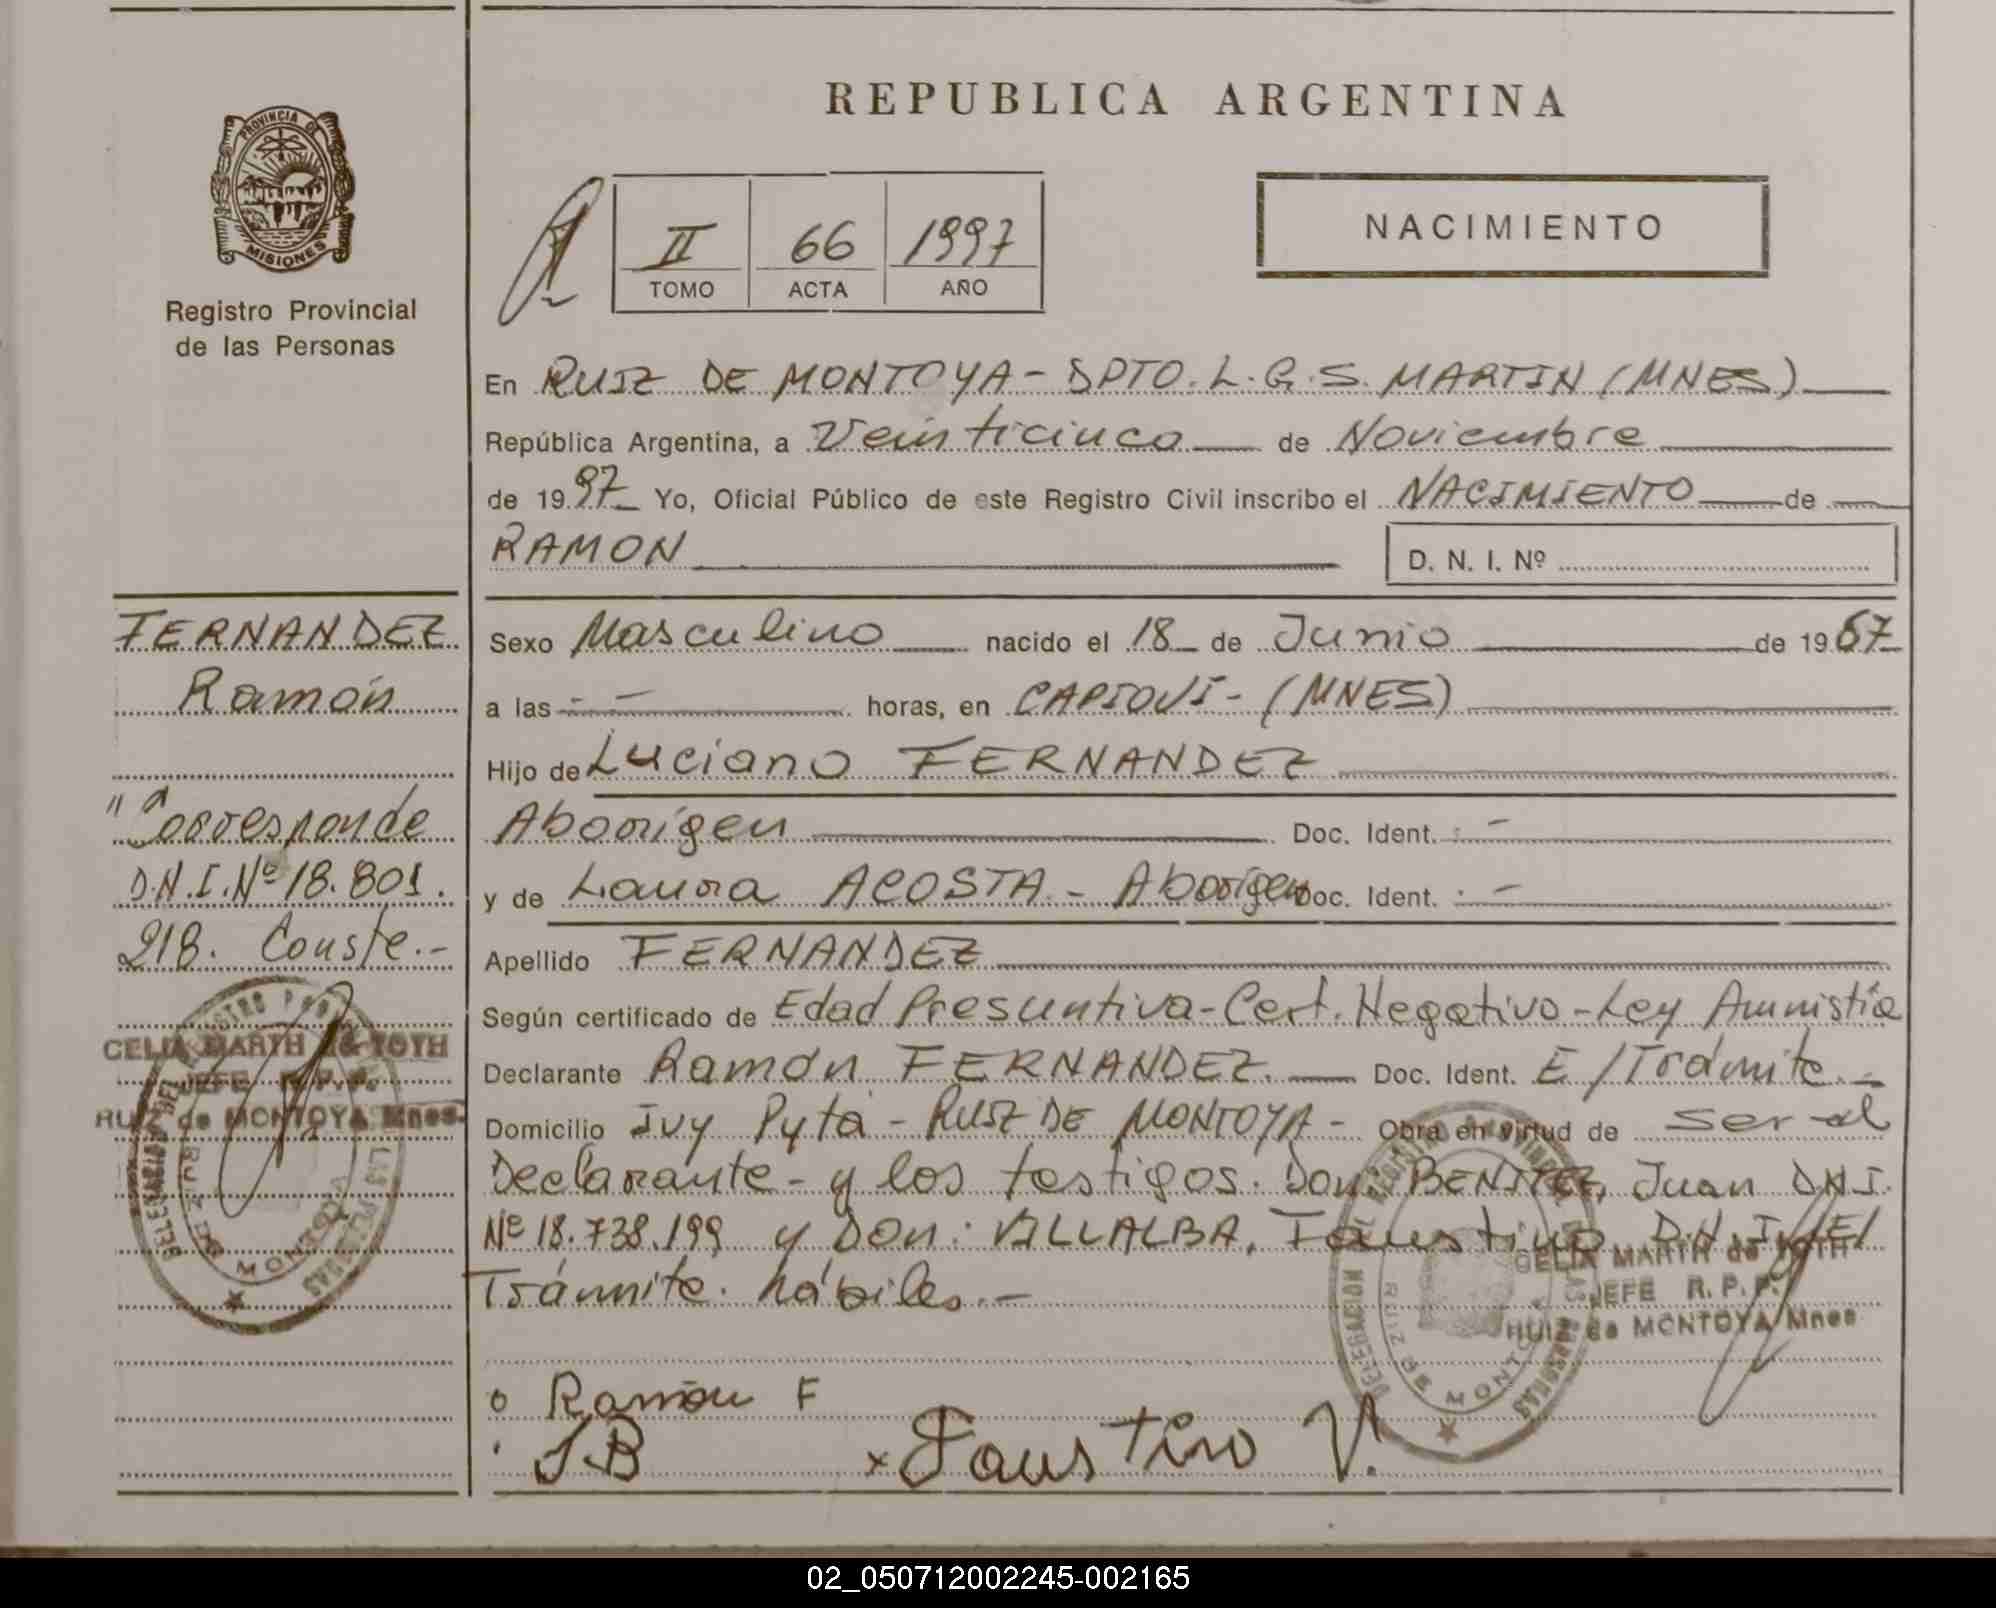 REPUBLICA ARGENTINA
PROVINCIA DE
MISIONES
Registro Provincial
de las Personas
II 66 1997
TOMO ACTA AÑO
NACIMIENTO
En RUIZ DE MONTOYA - DPTO. L.G.S. MARTIN (MNES)
República Argentina, a Veinticinco de Noviembre
de 1997 Yo, Oficial Público de este Registro Civil inscribo el NACIMIENTO de
RAMON
D. N. I. Nº
FERNANDEZ
Ramón
"Corresponde
D.N.I. Nº 18.801.
218. Conste.-
CELIA MARTH de TOTH
JEFE R.P.P.
RUIZ de MONTOYA Mnes.
Sexo Masculino nacido el 18 de Junio de 1967
a las - - horas, en CAPIOVI - (MNES)
Hijo de Luciano FERNANDEZ
Aborigen Doc. Ident. -
y de Laura ACOSTA - Aborigen Doc. Ident. -
Apellido FERNANDEZ
Según certificado de Edad Presuntiva - Cert. Negativo - Ley Amnistía
Declarante Ramón FERNANDEZ. Doc. Ident. E/Trámite.-
Domicilio Ivy Pytá - RUIZ DE MONTOYA - Obra en virtud de ser el
Declarante - y los testigos. Don: BENITEZ, Juan DNI.
Nº 18.738.199 y Don: VILLALBA, Faustino D.N.I. E/
Trámite. hábiles.-
CELIA MARTH de TOTH
JEFE R. P. P.
RUIZ de MONTOYA Mnes
DELEGACION DEL REGISTRO PROVINCIAL DE LAS PERSONAS
RUIZ DE MONTOYA
Ramón F
J B x Faustino V.
02_050712002245-002165